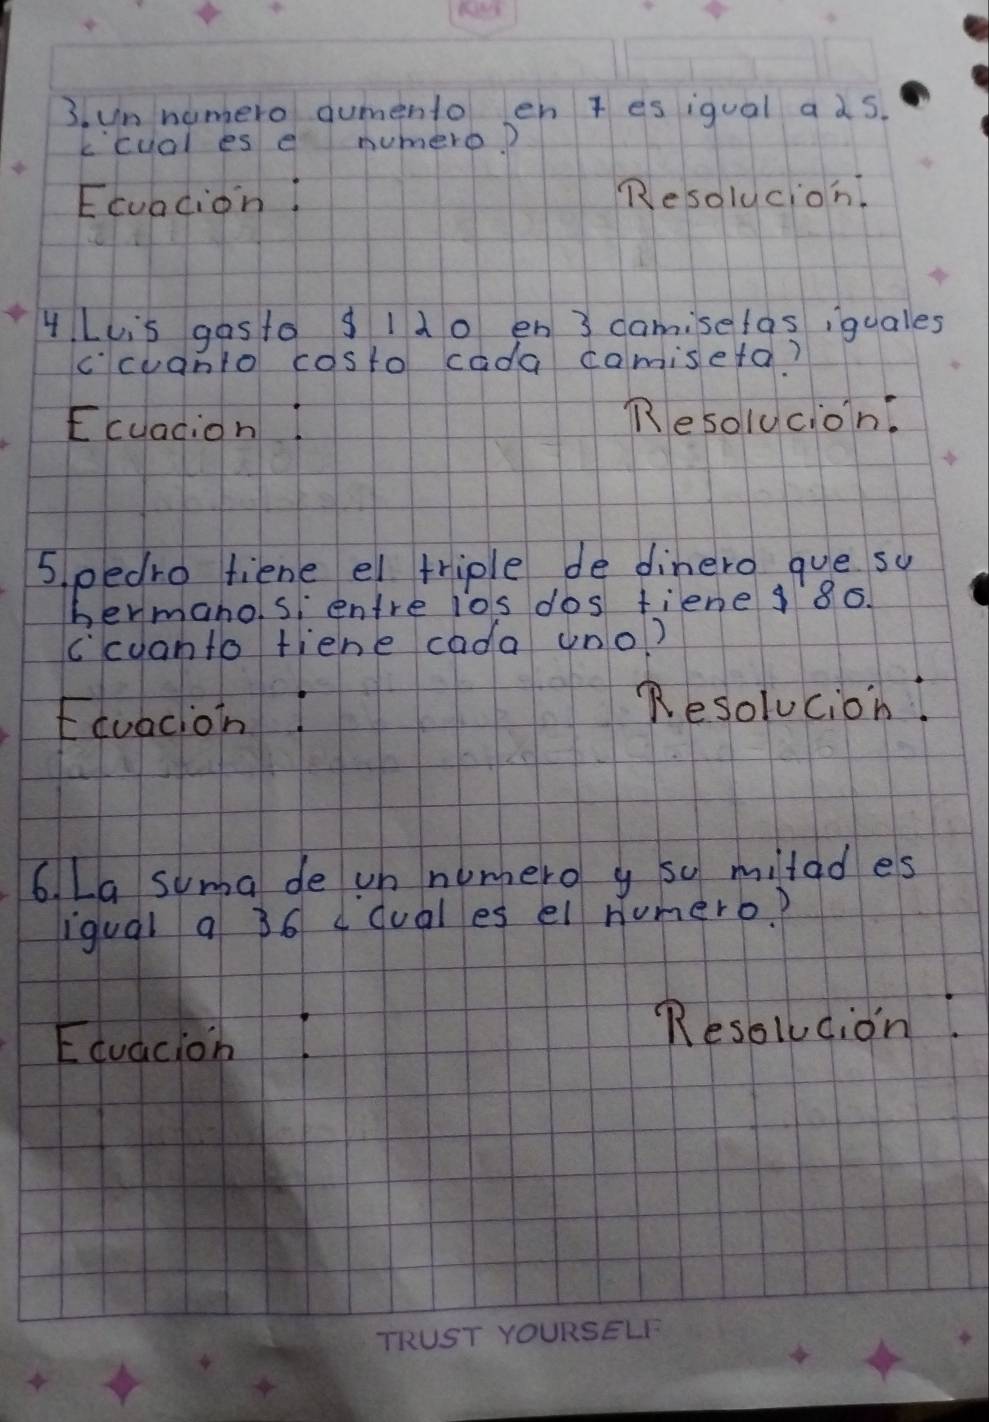 KIUT
3. Un numero aumento en 7 es igual a 25.
¿cual es e numero?
Ecuación:
Resolución:
4. Luis gasto $ 120 en 3 camisetas iguales
¿cuanto costo cada camiseta?
Ecuacion:
Resolución:
5. pedro tiene el triple de dinero que su
hermano. si entre los dos tiene $ 80.
¿cuanto tiene cada uno?
Ecuación:
Resolución:
6. La suma de un numero y su mitad es
igual a 36 ¿cual es el numero?
Ecuación:
Resolución:
TRUST YOURSELF